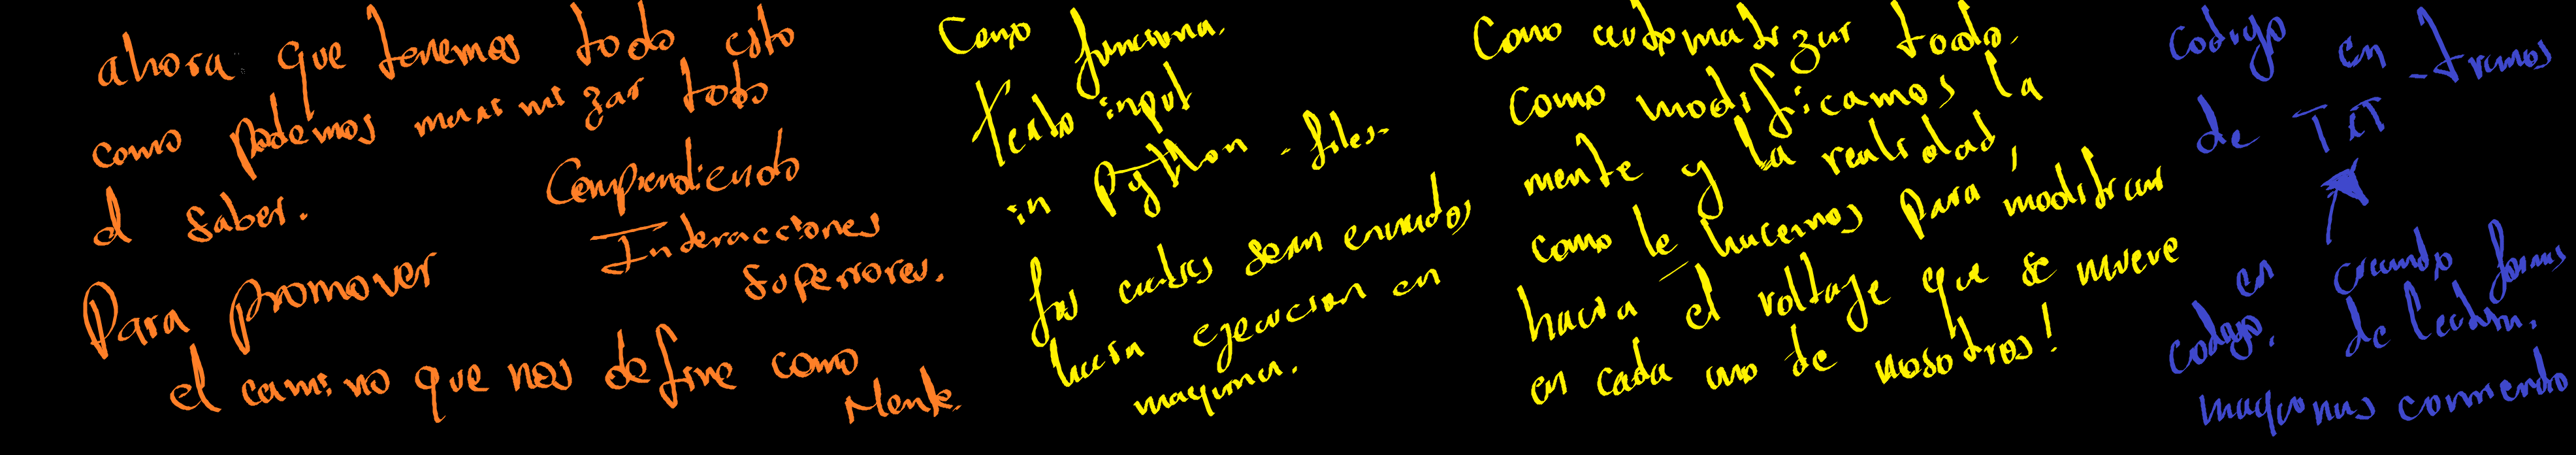 ahora que tenemos todo esto
como podemos maximizar todo
el saber.
Comprendiendo
Interacciones
superiores.
Para promover
el camino que nos define como
Mente.
Como funciona.
Texto input
in Python - files.
las cuales seran enviados
hacia ejecucion en
maquina.
Como automatizar todo.
como modificamos la
mente y la realidad,
como le hacemos para modificar
hacia el voltaje que se mueve
en cada uno de nosotros!
codigo en tramos
de TXT
en creando formas
codigo. de lectura.
maquinas corriendo